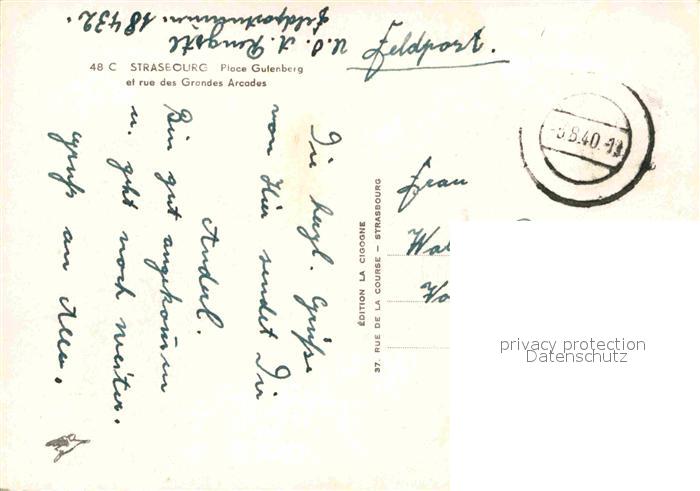 Feldpost.
U.O. A.
Feldpostnummer. 18432.
48 C STRASBOURG Place Gutenberg
et rue des Grandes Arcades
Die herzl. Grüße
von Hier sendet Dir
Anderl.
Bin gut angekommen
u. geht noch weiter.
Gruß an Alle.
ÉDITION LA CIGOGNE
37, RUE DE LA COURSE – STRASBOURG
8.40.
Frau
privacy protection
Datenschutz